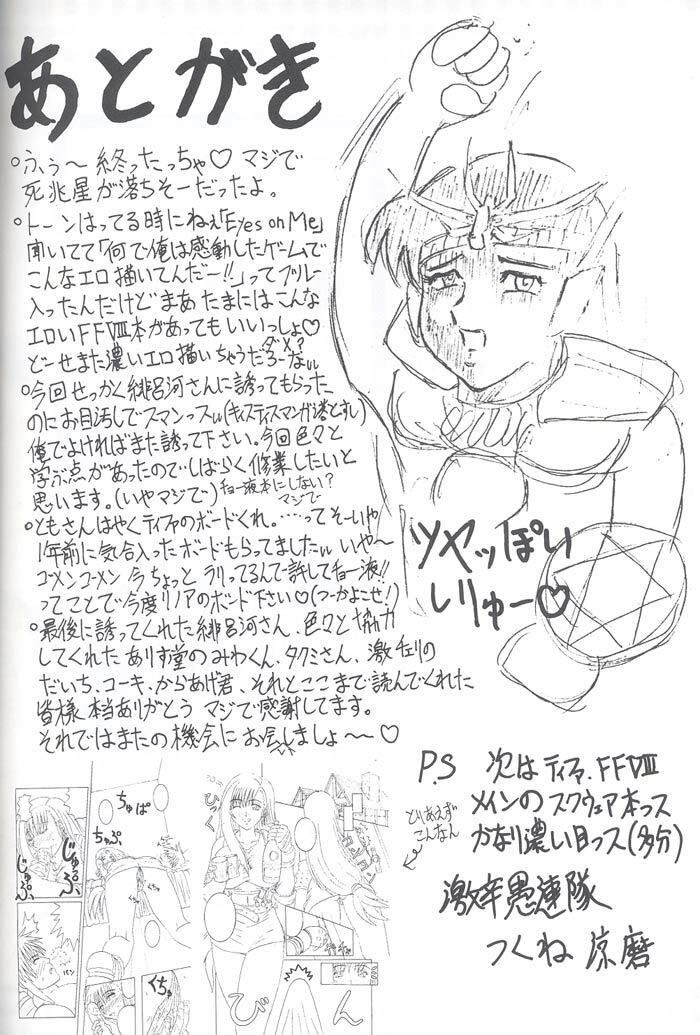 あとがき
○ふぅ～終ったっちゃ♡マジで
死兆星が落ちそーだったよ。
○トーンはってる時にねぇ「Eyes on Me」
聞いてて「何で俺は感動したゲームで
こんなエロ描いてんだー!!」ってブルー
入ったんだけどまあたまにはこんな
エロいFFⅧ本があってもいいっしょ♡
ダメ?
どーせまた濃いエロ描いちゃうだろーなぃぃ
○今回せっかく緋呂河さんに誘ってもらった
のにお目汚しでスマンっスぃぃ
俺でよければまた誘って下さい。今回色々と
学ぶ点があったのでしばらく修業したいと
思います。(いやマジで)
チョー液本にしない?
マジで
○ともさんはやくティファのボードくれ。……ってそーいや
1年前に気合入ったボードもらってましたぃぃいや～
ゴメンゴメン今ちょっとうりってるんで許してチョー液!!
ってことで今度リノアのボンド下さい♡(つーかよこせ!)
○最後に誘ってくれた緋呂河さん、色々と協力
してくれたありす堂のみわくん、タクミさん、激チェリの
だいち、コーキ、からあげ君、それとここまで読んでくれた
皆様本当ありがとうマジで感謝してます。
それではまたの機会にお会いしましょ～♡
ツヤッぽい
しりゅー♡
P.S 次はティファ、FFⅦ
メインのスクウェア本っス
かなり濃い目っス(多分)
とりあえず
こんなん
激辛愚連隊
つくね涼磨
じゅるっ、
じゅぷっ
ちゅぱ
ちゅぷ、
ひっく
パン
くちゅ
びん